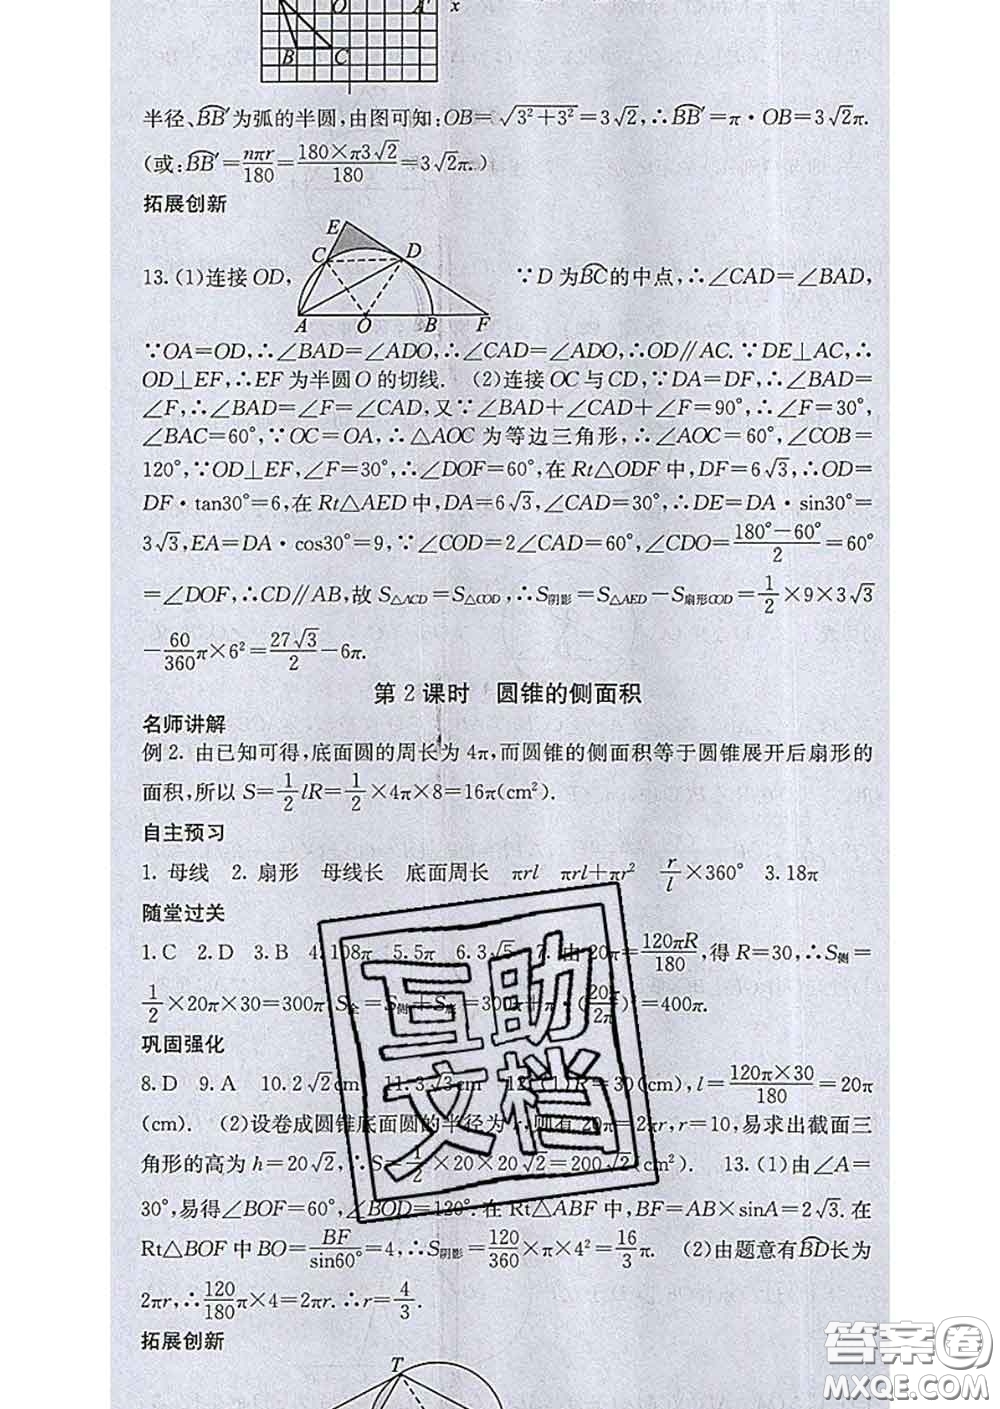 O A′ x
B C
半径、BB′为弧的半圆,由图可知:OB=√(3²+3²)=3√2,∴BB′=π·OB=3√2π.
(或:BB′=nπr/180=180×π3√2/180=3√2π.)
拓展创新
E
C D
13.(1)连接OD, ∵D为BC的中点,∴∠CAD=∠BAD,
A O B F
∵OA=OD,∴∠BAD=∠ADO,∴∠CAD=∠ADO,∴OD∥AC.∵DE⊥AC,∴
OD⊥EF,∴EF为半圆O的切线. (2)连接OC与CD,∵DA=DF,∴∠BAD=
∠F,∴∠BAD=∠F=∠CAD,又∵∠BAD+∠CAD+∠F=90°,∴∠F=30°,
∠BAC=60°,∵OC=OA,∴△AOC为等边三角形,∴∠AOC=60°,∠COB=
120°,∵OD⊥EF,∠F=30°,∴∠DOF=60°,在Rt△ODF中,DF=6√3,∴OD=
DF·tan30°=6,在Rt△AED中,DA=6√3,∠CAD=30°,∴DE=DA·sin30°=
3√3,EA=DA·cos30°=9,∵∠COD=2∠CAD=60°,∠CDO=(180°-60°)/2=60°
=∠DOF,∴CD∥AB,故S△ACD=S△COD,∴S阴影=S△AED-S扇形COD=1/2×9×3√3
-60/360π×6²=27√3/2-6π.
第2课时 圆锥的侧面积
名师讲解
例2. 由已知可得,底面圆的周长为4π,而圆锥的侧面积等于圆锥展开后扇形的
面积,所以S=1/2lR=1/2×4π×8=16π(cm²).
自主预习
1. 母线 2. 扇形 母线长 底面周长 πrl πrl+πr² r/l×360° 3.18π
随堂过关
1.C 2.D 3.B 4.108π 5.5π 6.3√5 7. 由20π=120πR/180,得R=30,∴S侧=
1/2×20π×30=300π S全=S侧+S底=300π+π·(20π/2π)²=400π.
巩固强化
8.D 9.A 10.2√2cm 11.3√3cm 12.(1)R=30(cm),l=120π×30/180=20π
(cm). (2)设卷成圆锥底面圆的半径为r,则有20π=2πr,r=10,易求出截面三
角形的高为h=20√2,∴S=1/2×20×20√2=200√2(cm²). 13.(1)由∠A=
30°,易得∠BOF=60°,∠BOD=120°.在Rt△ABF中,BF=AB×sinA=2√3.在
Rt△BOF中BO=BF/sin60°=4,∴S阴影=120/360×π×4²=16/3π. (2)由题意有BD长为
2πr,∴120/180π×4=2πr.∴r=4/3.
拓展创新
T
互助
文档
答案圈
MXQE.COM